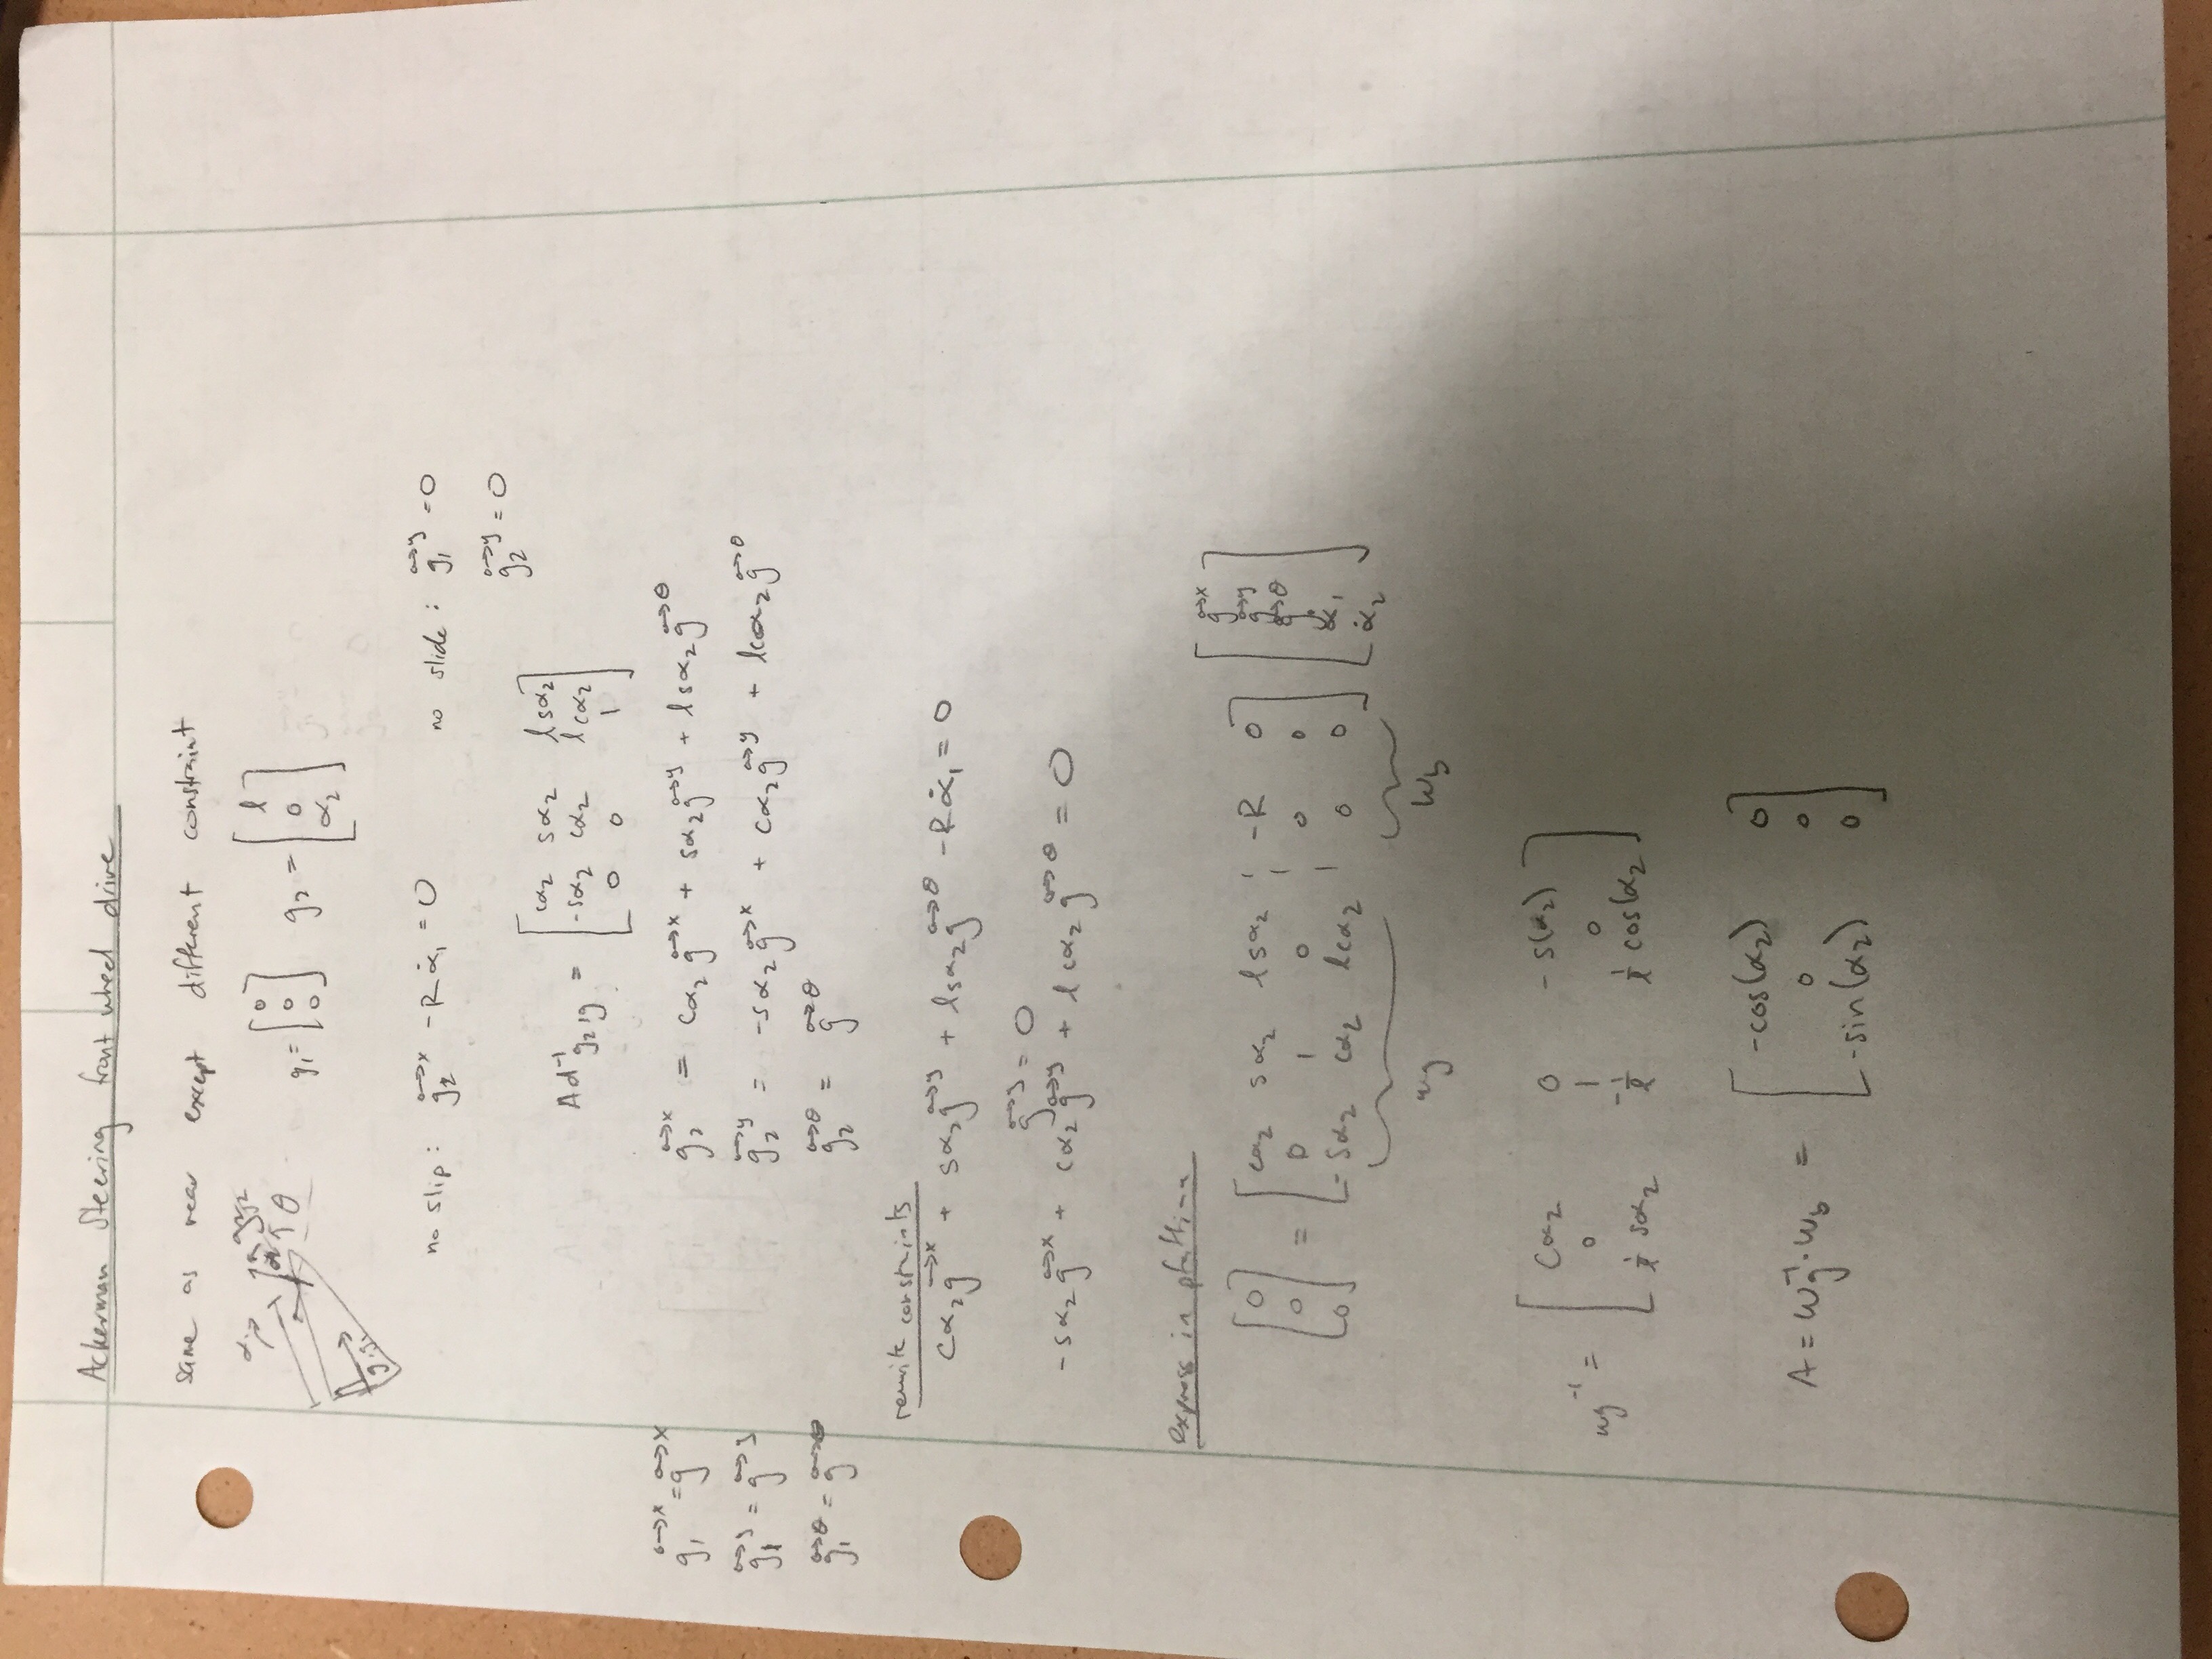 Ackerman Steering front wheel drive
same as rear except different constraint
g₁ = [0; 0; 0] g₂ = [l; 0; α₂]
θ
g, g₁
no slip: g⃗₂ˣ - Rα̇₁ = 0 no slide: g⃗₁ʸ = 0
g⃗₂ʸ = 0
Ad⁻¹g₂,g = [cα₂ sα₂ lsα₂; -sα₂ cα₂ lcα₂; 0 0 1]
g⃗₁ˣ = g⃗ˣ g⃗₂ˣ = cα₂ g⃗ˣ + sα₂ g⃗ʸ + lsα₂ g⃗θ
g⃗₁ʸ = g⃗ʸ g⃗₂ʸ = -sα₂ g⃗ˣ + cα₂ g⃗ʸ + lcα₂ g⃗θ
g⃗₁θ = g⃗θ g⃗₂θ = g⃗θ
rewrite constrints
cα₂ g⃗ˣ + sα₂ g⃗ʸ + lsα₂ g⃗θ - Rα̇₁ = 0
g⃗ʸ = 0
-sα₂ g⃗ˣ + cα₂ g⃗ʸ + lcα₂ g⃗θ = 0
express in
[0; 0; 0] = [cα₂ sα₂ lsα₂ ¦ -R 0; 0 1 0 ¦ 0 0; -sα₂ cα₂ lcα₂ ¦ 0 0] [g⃗ˣ; g⃗ʸ; g⃗θ; α̇₁; α̇₂]
wg wb
wg⁻¹ = [cα₂ 0 -s(α₂); 0 1 0; 1/l sα₂ -1/l 1/l cos(α₂]
A = wg⁻¹·wb = [-cos(α₂) 0; 0 0; -sin(α₂) 0]